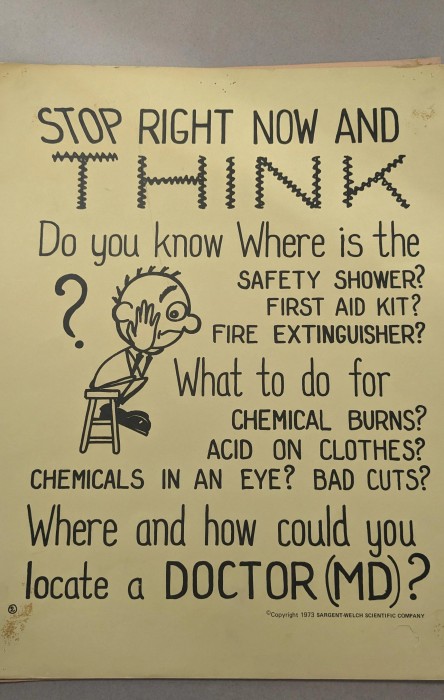 STOP RIGHT NOW AND
THINK
Do you know Where is the
SAFETY SHOWER?
?
FIRST AID KIT?
FIRE EXTINGUISHER?
What to do for
CHEMICAL BURNS?
ACID ON CLOTHES?
CHEMICALS IN AN EYE? BAD CUTS?
Where and how could you
locate a DOCTOR (MD)?
©Copyright 1973 SARGENT-WELCH SCIENTIFIC COMPANY